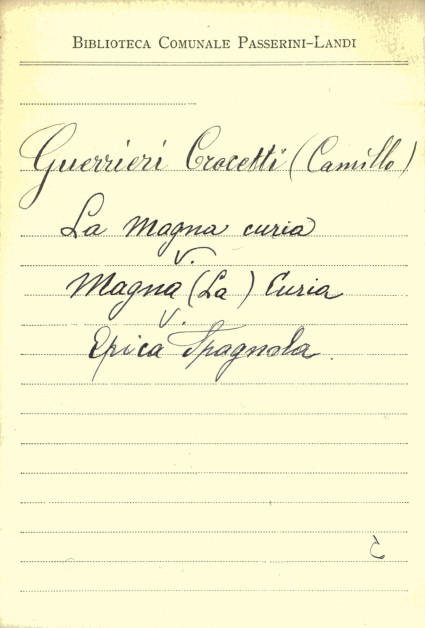 BIBLIOTECA COMUNALE PASSERINI-LANDI
Guerrieri Crocetti (Camillo)
La Magna curia
V.
Magna (La) Curia
V.
Epica Spagnola